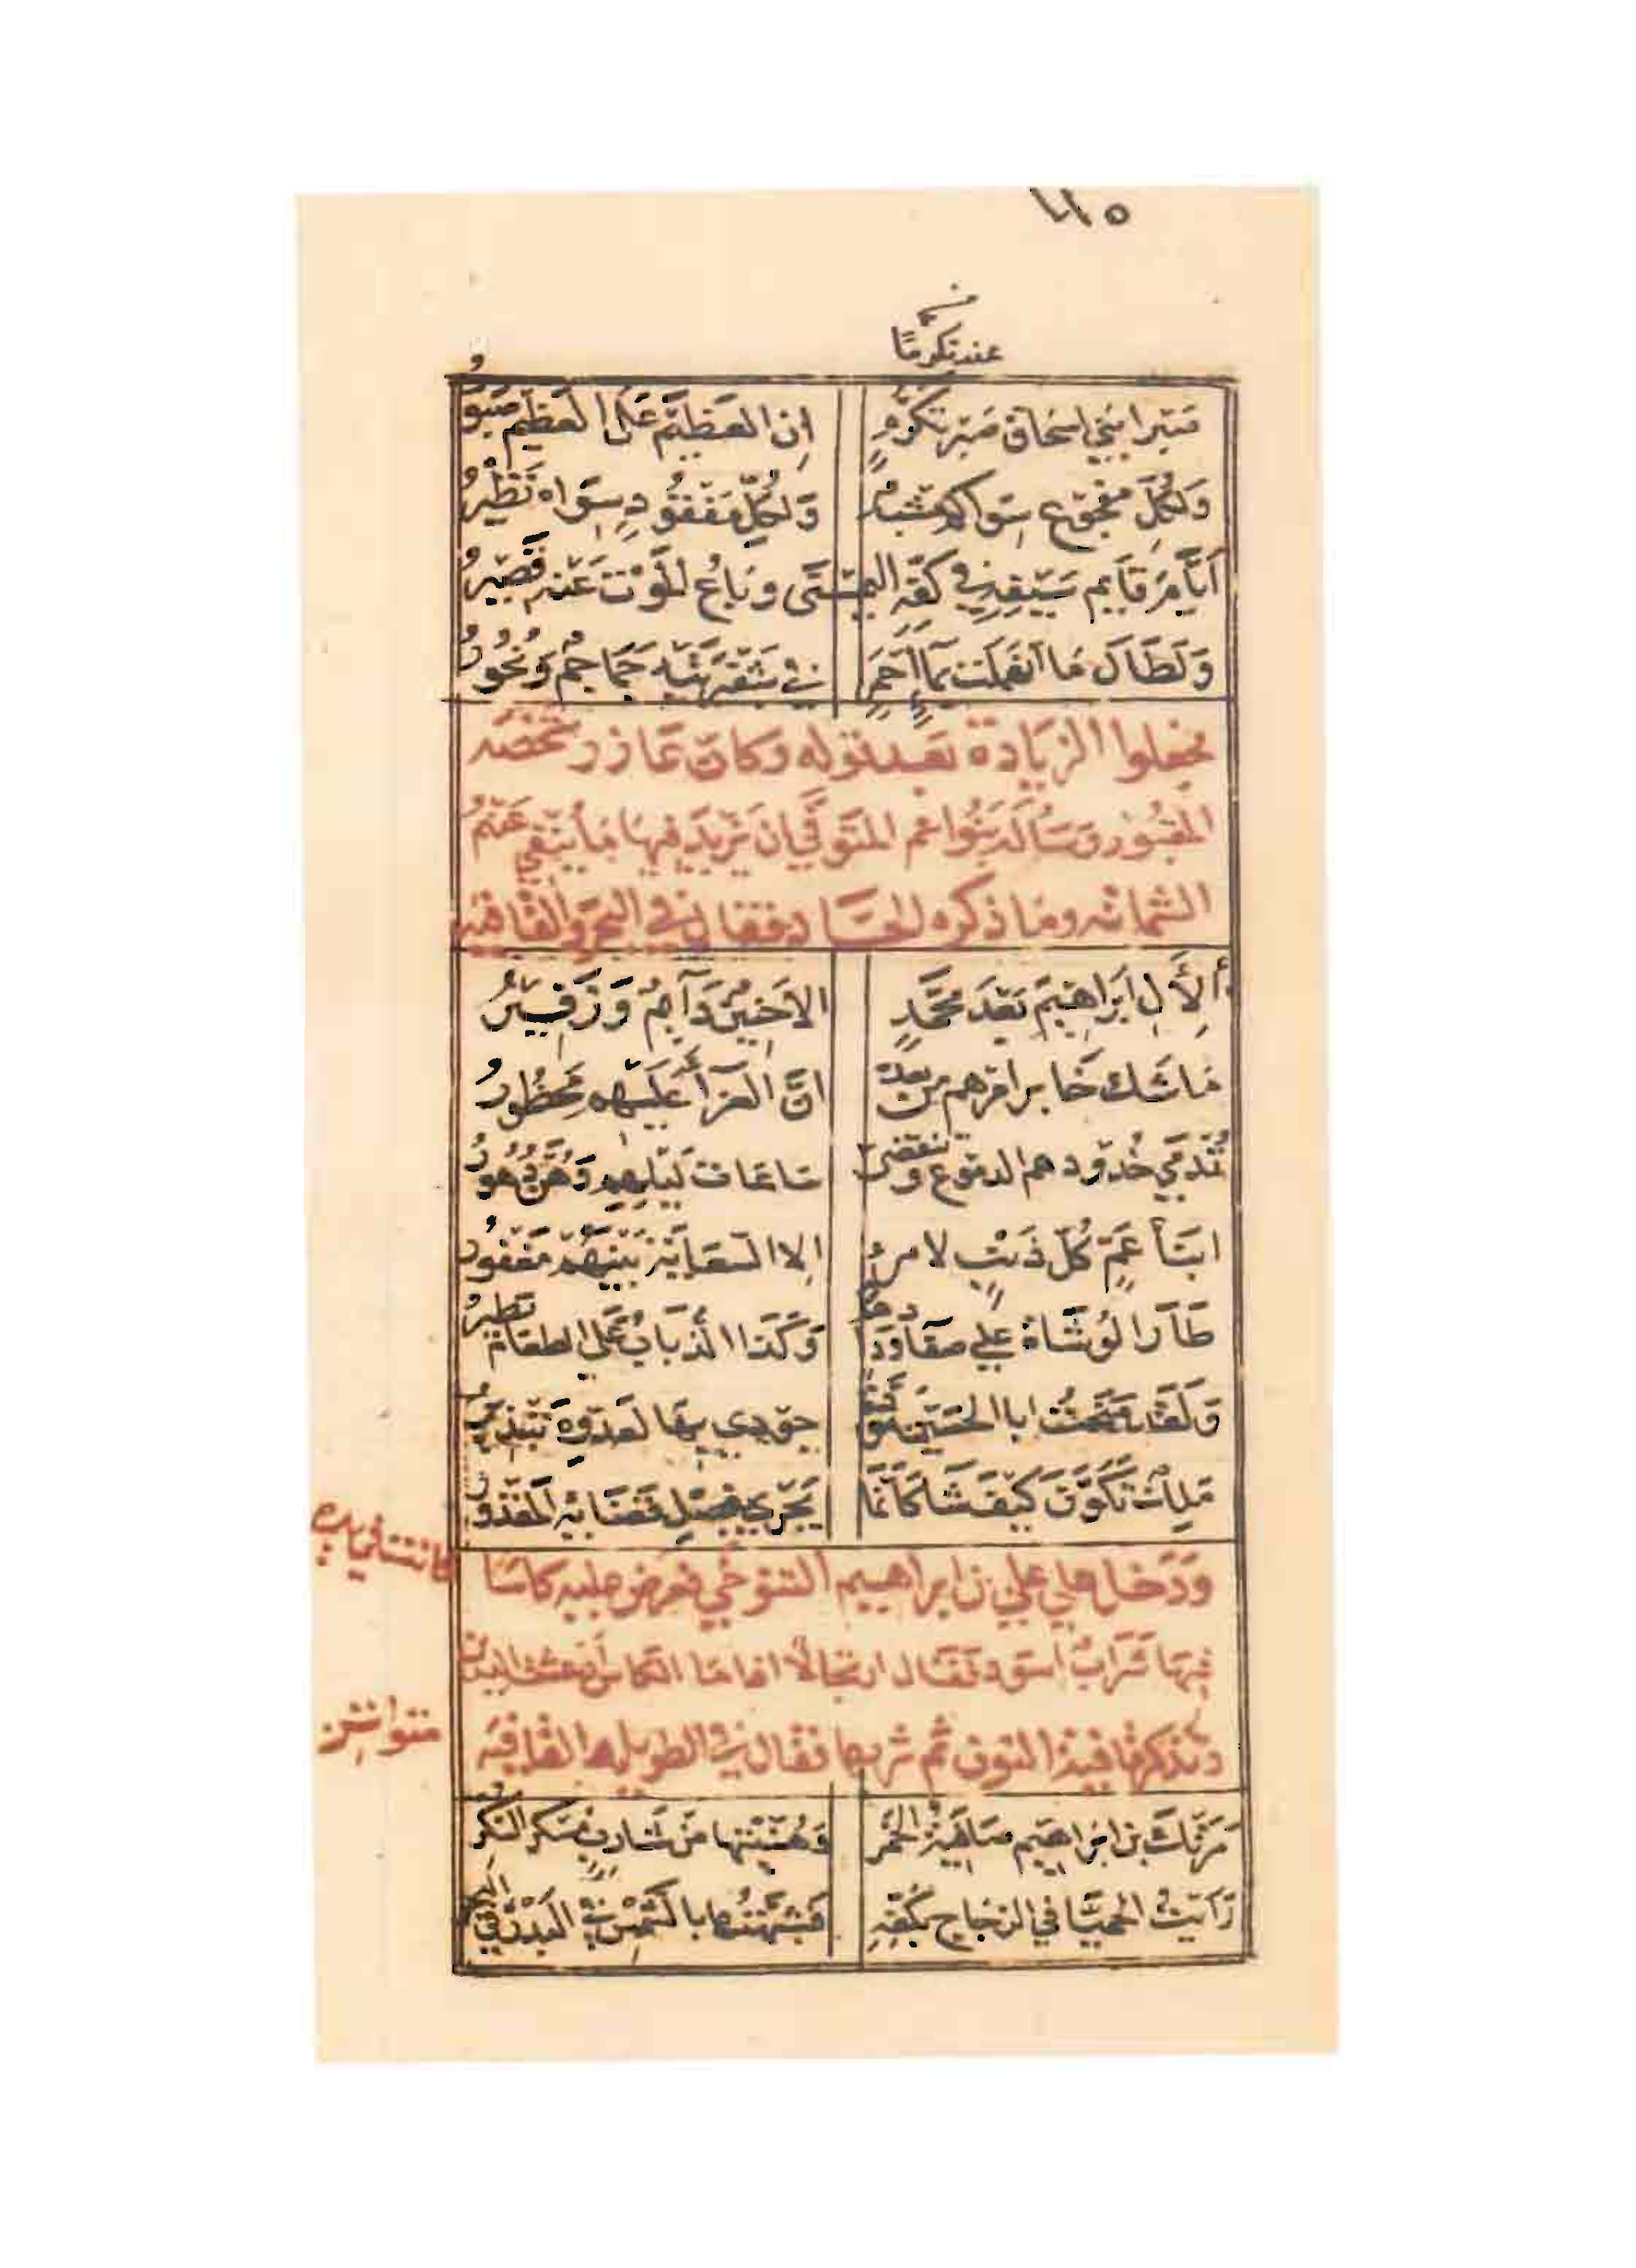 ١١٥
عنه تكرما
صَبْرا بَني اسْحَاق عَنه تَكَرُّمٍ إنَ العَظِيْمَ عَلى العَظِيْمِ صَبوُرُ
وَلِكُلّ مَفْجُوع سِوَاكم مُشبهٌ وَلِكُلِّ مَفْقُودٍ سِوَاه نَظْيْرُ
اَيَّامَ قَايم سَيْفِهِ في كَفّهِ اليُمْنَى وبَاعُ المَوْت عَنْه قَصِيْرُ
وَلَطَاَل مَا انهَمَلَت بمَاءٍ أحْمَرٍ في شَفْرَتَيْه جَمَاجمٌ وَنُحُوْرُ
فجعلوا الزيَادة بَعد قوله وكان عَازر شخصَه
المقبُور وَسَأله بَنُوا عم المتَوَفّي ان يَزيدَ فيهَا مَا يَنْفي عَنْهُم
الشماته وما ذكره الحسّاد فقال في البحر والقافيه
ألِأَلِ ابرَاهيْمَ بَعْدَ مُحَمَّدٍ الا حَنِيْنٌ دَآئمٌ وَزَفِيْرُ
مَا شَك خَابر امرهم من بعده انَّ العَزَآءَ عَلَيْهم مَحْظُورُ
تُدْمي خُدُودهم الدموع وتنقضي سَاعَات لَيْلِهِم وَهُنَّ دُهُورُ
ابْنَآءُ عَمٍّ كُلّ ذَنْبٍ لامرئٍ إلا السّعَايَة بَيْنَهُم مَغْفُور
طَآرَ الوُشَاة علي صفآء ودَادهم وَكَذا الذُّبَابُ عَلى الطعَام يَطيرُ
وَلَقَد مَنَحْتُ ابا الحسَيْن مَوَدّة جوُدي بهَا لعَدُوّهِ تَبْذيرُ
مَلِك تَكَوَّنَ كَيْفَ شَاء كَأنَّمَا يَجْري بفَصْلِ قَضَائِه المَقْدُورُ
ودَخل علي علي بن ابراهيم التنوخي فعرض عليه كاسًا كانت في يده
فيهَا شَرابٌ اسود فقَال ارتجالاً اذا ما الكاس أرعشت اليدين
وتذكر في قافية النون ثم شربها فقال في الطويل والقافيه متواتر
مَرَتْكَ بن ابْرَاهيم صَافيَةُ الخَمْر وَهُنّئْتها منْ شَاربٍ مُسْكر السُّكْرِ
رَأيْتُ الحُمَيّا في الزجَاج بكَفّهِ فَشَبّهْتُها بالشّمْس في البَدْر في البحر